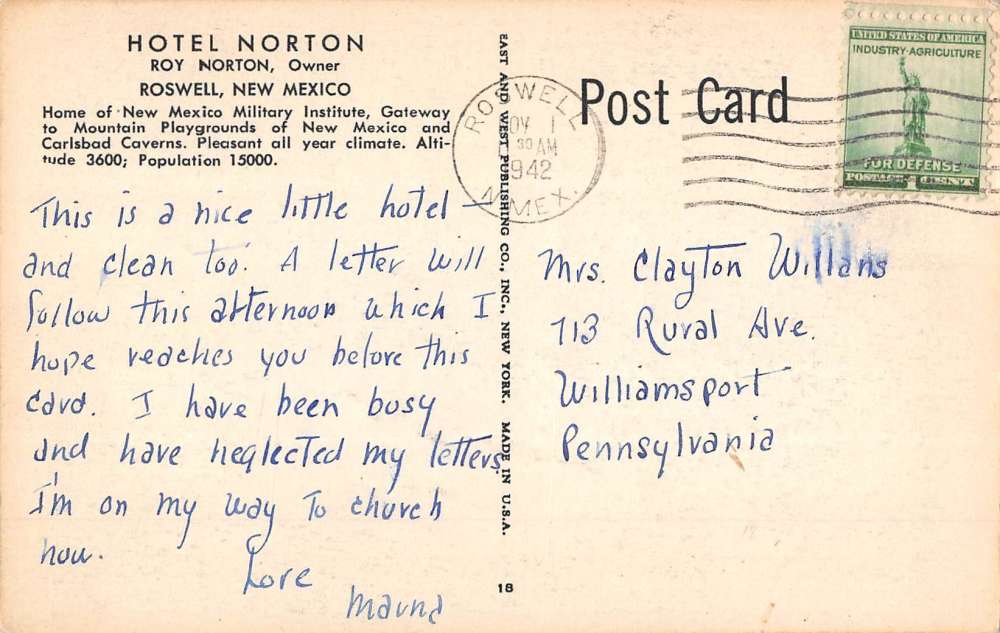 HOTEL NORTON
ROY NORTON, Owner
ROSWELL, NEW MEXICO
Home of New Mexico Military Institute, Gateway
to Mountain Playgrounds of New Mexico and
Carlsbad Caverns. Pleasant all year climate. Alti-
tude 3600; Population 15000.
This is a nice little hotel —
and clean too. A letter will
follow this afternoon which I
hope reaches you before this
card. I have been busy
and have neglected my letters.
I'm on my way to church
now.
Love
EAST AND WEST PUBLISHING CO., INC., NEW YORK. MADE IN U.S.A.
18
Post Card
ROSWELL
NOV 1
30 AM
1942
N. MEX.
UNITED STATES OF AMERICA
INDUSTRY·AGRICULTURE
FOR DEFENSE
POSTAGE 1 CENT
Mrs. Clayton Willans
713 Rural Ave.
Williamsport
Pennsylvania